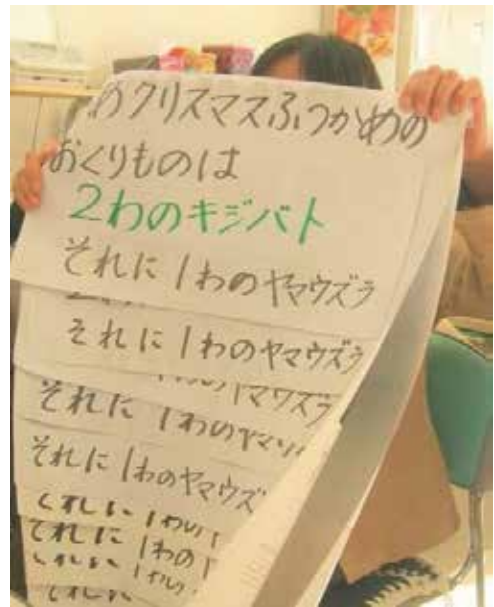 クリスマスふつかめの
おくりものは
2わのキジバト
それに1わのヤマウズラ
それに1わのヤマウズラ
それに1わのヤマ
それに1わのヤマウズ
それに1わの